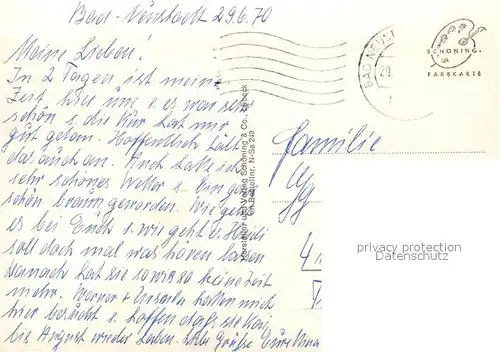 Bad-Neustadt 29.6.70
Meine Lieben!
In 2 Tagen ist meine
Zeit hier um u. es war sehr
schön u. die Kur hat mir
gut getan. Hoffentlich hält
das auch an. Auch hatte ich
sehr schönes Wetter u. bin ganz
schön braun geworden. Wie geht
es bei Euch u. wie geht es Heidi
soll doch mal was hören lassen
danach hat sie sowieso keine Zeit
mehr. Werner + haben mich
hier besucht u. hoffen daß sie Kai
bis August wieder haben. Viele Grüße Eure
BAD NEUST
SCHÖNING
FARBKARTE
Hersteller und Verlag Schöning & Co., Lübeck
Bestellnr. N-Sa 249
Familie
privacy protection
Datenschutz